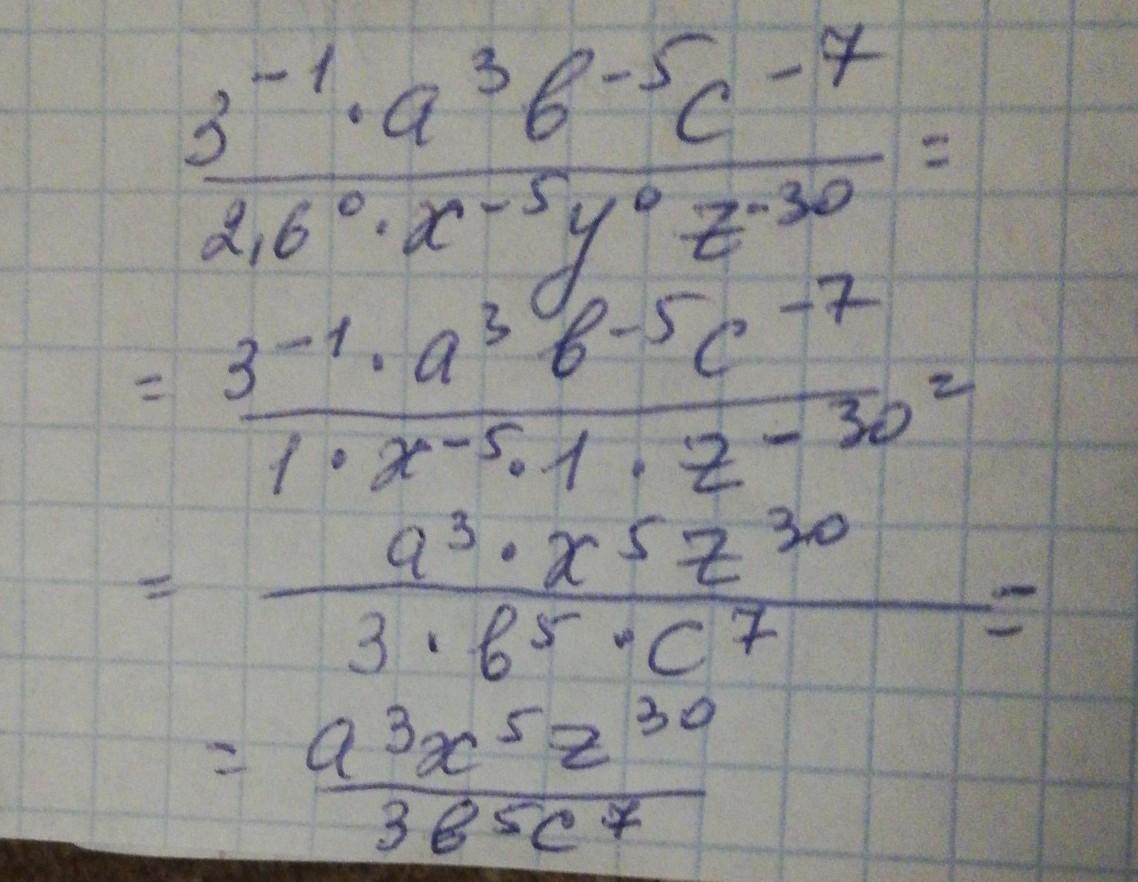 3⁻¹ · a³ b⁻⁵ c⁻⁷
2,6⁰ · x⁻⁵ y⁰ z⁻³⁰ =
= 3⁻¹ · a³ b⁻⁵ c⁻⁷
1 · x⁻⁵ · 1 · z⁻³⁰ =
= a³ · x⁵ z³⁰
3 · b⁵ · c⁷ =
= a³x⁵z³⁰
3b⁵c⁷